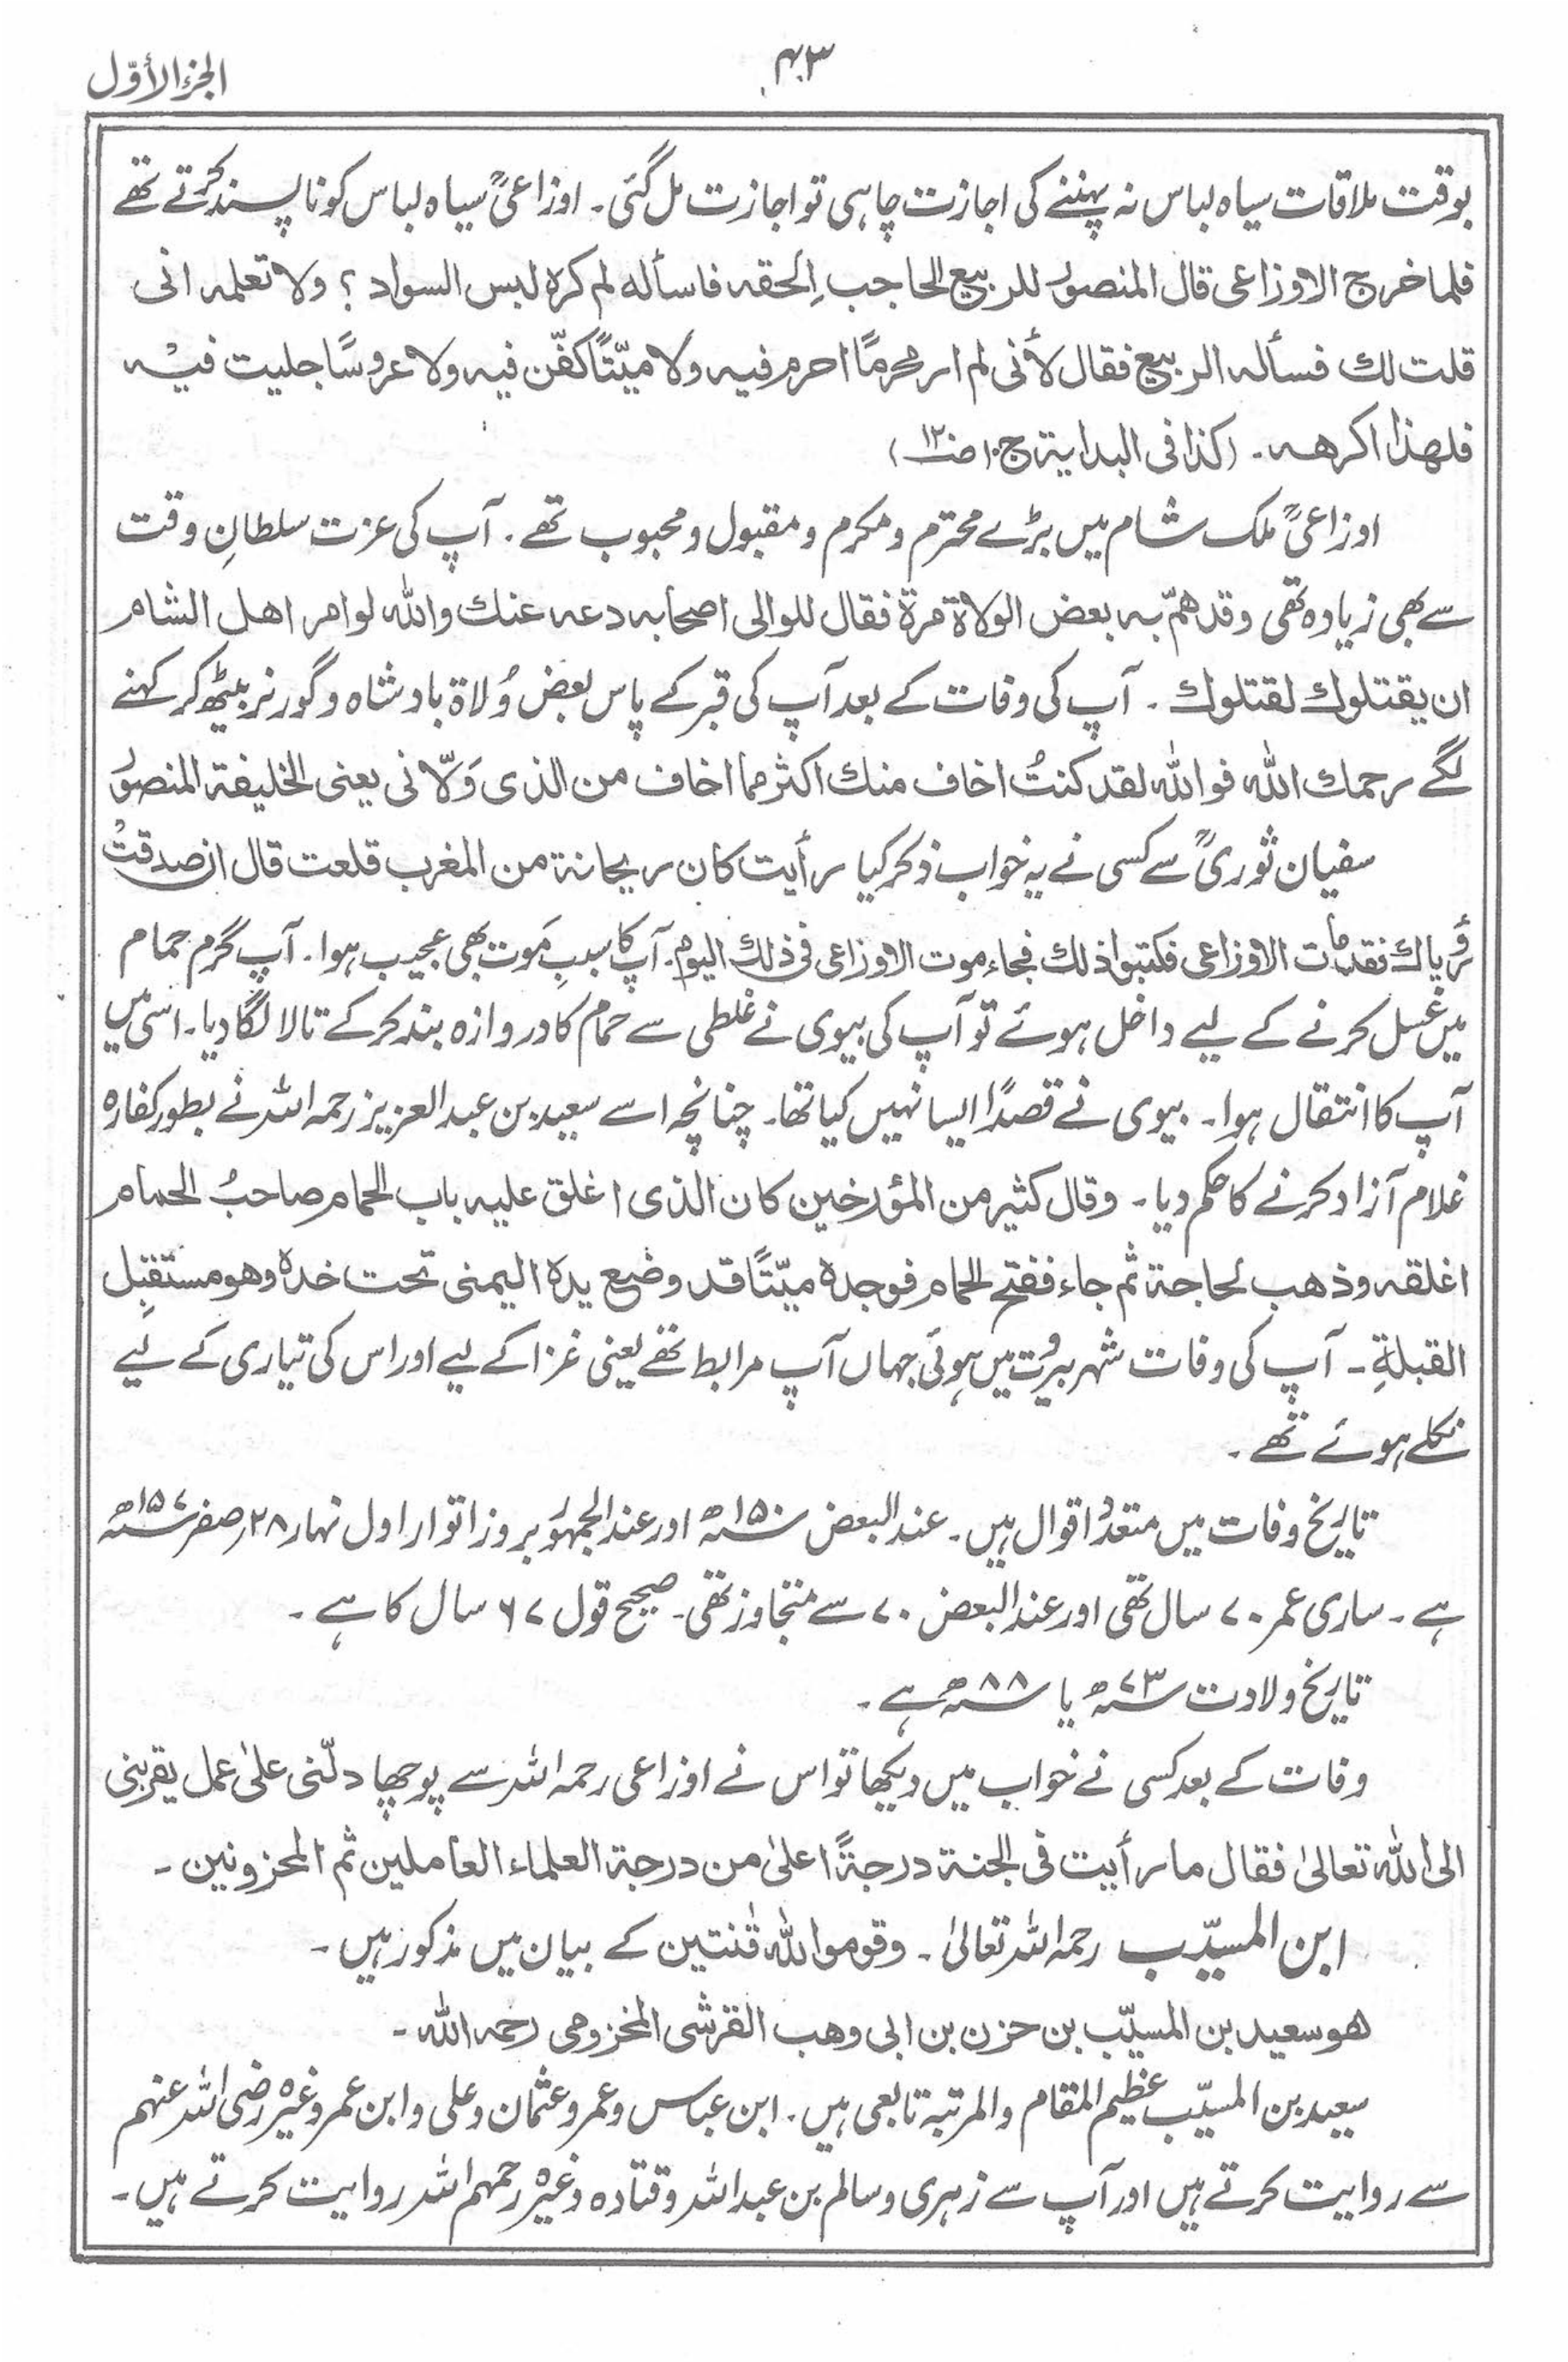 الجزء الأوّل
۴۰۳
بوقت ملاقات سیاہ لباس نہ پہننے کی اجازت چاہی تو اجازت مل گئی۔ اوزاعیؒ سیاہ لباس کو ناپسند کرتے تھے
فلما خرج الاوزاعی قال المنصورُ للربیع الحاجب اِلحقه فاسأله لم كره لبس السواد ؟ ولا تعلمه انی
قلت لك فسأله الربیع فقال لأنی لم ار محرمًا احرم فیه ولا میّتًا كفّن فیه ولا عروسًا جلیت فیْه
فلهذا اکرهه ۔ (کذا فی البدایة ج۱۰ ص۱۲۰)
اوزاعیؒ ملک شام میں بڑے محترم و مکرم و مقبول و محبوب تھے۔ آپ کی عزت سلطانِ وقت
سے بھی زیادہ تھی وقد همّ به بعض الولاة مرة فقال للوالی اصحابه دعه عنك والله لو امر اهل الشام
ان یقتلوك لقتلوك ۔ آپ کی وفات کے بعد آپ کی قبر کے پاس بعض وُلاة بادشاہ و گورنر بیٹھ کر کہنے
لگے رحمك الله فوالله لقد كنتُ اخاف منك اكثر مما اخاف من الذی وَلّانی یعنی الخلیفة المنصورُ
سفیان ثوریؒ سے کسی نے یہ خواب ذکر کیا رأیت كان ریحانة من المغرب قلعت قال ان صدقتْ
رُؤیاك فقد مات الاوزاعی فكتبوا ذلك فجاء موت الاوزاعی فی ذلك الیوم۔ آپ کا سببِ مَوت بھی عجیب ہوا۔ آپ گرم حمام
میں غسل کرنے کے لیے داخل ہوئے تو آپ کی بیوی نے غلطی سے حمام کا دروازہ بند کرکے تالا لگا دیا۔ اسی میں
آپ کا انتقال ہوا۔ بیوی نے قصدًا ایسا نہیں کیا تھا۔ چنانچہ اسے سعید بن عبدالعزیز رحمہ اللہ نے بطور کفارہ
غلام آزاد کرنے کا حکم دیا۔ وقال كثیر من المؤرخین كان الذی اغلق علیه باب الحمام صاحبُ الحمام
اغلقه وذهب لحاجة ثم جاء ففتح الحمام فوجده میّتًا قد وضع یده الیمنی تحت خده وهو مستقبِل
القبلةِ ۔ آپ کی وفات شہر بیروت میں ہوئی جہاں آپ مرابط تھے یعنی غزا کے لیے اور اس کی تیاری کے لیے
نکلے ہوئے تھے۔
تاریخ وفات میں متعدد اقوال ہیں۔ عند البعض ۱۵۰ھ اور عند الجمہور بروز اتوار اول نہار ۲۸ صفر ۱۵۷ھ
ہے۔ ساری عمر ۷۰ سال تھی اور عند البعض ۷۰ سے متجاوز تھی۔ صحیح قول ۶۷ سال کا ہے۔
تاریخ ولادت ۷۳ھ یا ۸۸ھ ہے۔
وفات کے بعد کسی نے خواب میں دیکھا تو اس نے اوزاعی رحمہ اللہ سے پوچھا دلّنی علیٰ عمل یقربنی
الی الله تعالیٰ فقال ما رأیت فی الجنة درجةً اعلیٰ من درجة العلماء العاملین ثم المحزونین ۔
ابن المسیّب رحمہ اللہ تعالیٰ ۔ وقوموا لله قٰنتین کے بیان میں مذکور ہیں ۔
هو سعید بن المسیّب بن حزن بن ابی وهب القرشی المخزومی رحمه الله ۔
سعید بن المسیّب عظیم المقام والمرتبۃ تابعی ہیں۔ ابن عباس و عمر و عثمان و علی و ابن عمر وغیرہ رضی اللہ عنہم
سے روایت کرتے ہیں اور آپ سے زہری و سالم بن عبداللہ و قتادہ وغیرہ رحمہم اللہ روایت کرتے ہیں۔